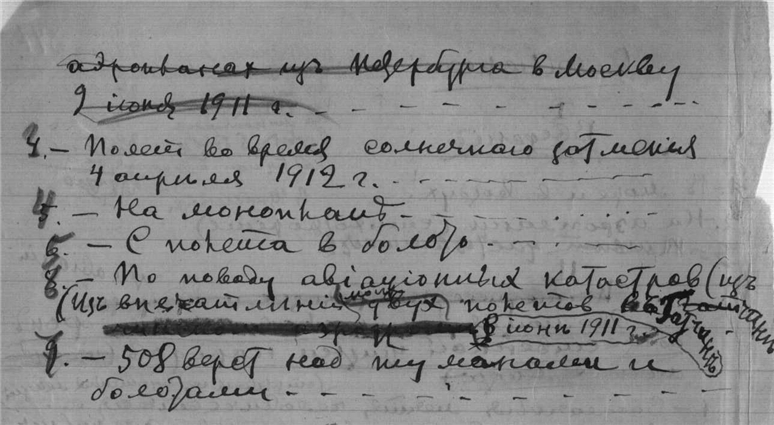 аэропланах изъ Петербурга в Москву
9 июня 1911 г.
4. – Полет во время солнечного затмения
4 апреля 1912 г.
– На монопланѣ
– С полета в болото
8. По поводу авіаціонных катастроф (изъ
(Изъ впечатлиній моих двух полетов въ Гатчинѣ
в июнѣ 1911 г.)
9. – 508 верст над туманами и
болотами